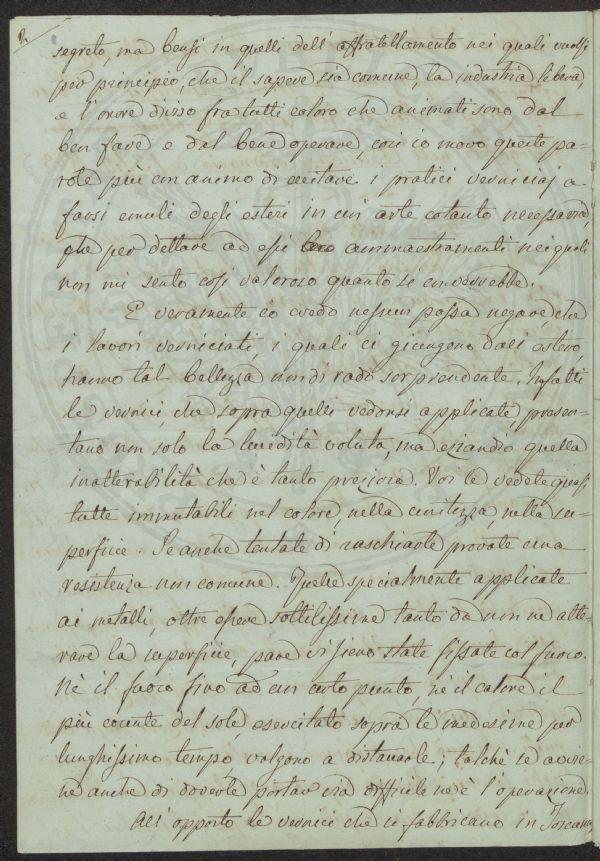 2.
segreto, ma bensì in quelli dell' affratellamento nei quali vuolsi
per principio, che il sapere sia comune, la industria libera,
e l' onore diviso fra tutti coloro che animati sono dal
ben fare e dal bene operare, così io movo queste pa=
role più con animo di eccitare i pratici verniciaj a
farsi emuli degli esteri in un' arte cotanto necessaria,
che per dettare ad essi ammaestramenti nei quali
non mi sento così valoroso quanto si converrebbe.
E veramente io credo nessun possa negare, che
i lavori verniciati, i quali ci giungono dall' estero,
hanno tal bellezza non di rado sorprendente. Infatti
le vernici, che sopra quelli vedonsi applicate, presen=
tano non solo la lucidità voluta, ma eziandio quella
inalterabilità che è tanto preziosa. Voi le vedete quasi
tutte immutabili nel colore, nella lucidezza, nella su=
perficie. Se anche tentate di raschiarle provate una
resistenza non comune. Quelle specialmente applicate
ai metalli, oltre essere sottilissime tanto da non ne alte=
rare la superficie, pare vi sieno state fissate col fuoco.
Nè il fuoco fino ad un certo punto, nè il calore il
più cocente del sole, esercitato sopra le medesime per
lunghissimo tempo valgono a distaccarle; talchè se avvie=
ne anche di doverle portar via difficile ne è l' operazione.
All' opposto le vernici che si fabbricano in Toscana,